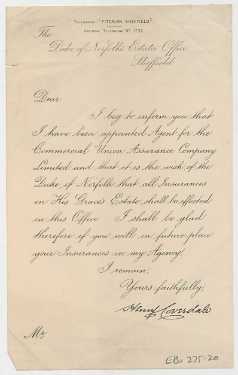 TELEGRAMS "FITZALAN SHEFFIELD"
NATIONAL TELEPHONE Nº
The
Duke of Norfolk's Estates Office
Sheffield
Dear
I beg to inform you that
I have been appointed Agent for the
Commercial Union Assurance Company
Limited and that it is the wish of the
Duke of Norfolk that all Insurances
on His Grace's Estate shall be effected
in this Office I shall be glad
therefore if you will in future place
your Insurances in my Agency.
I remain,
Yours faithfully,
Henry Coverdale
Mr